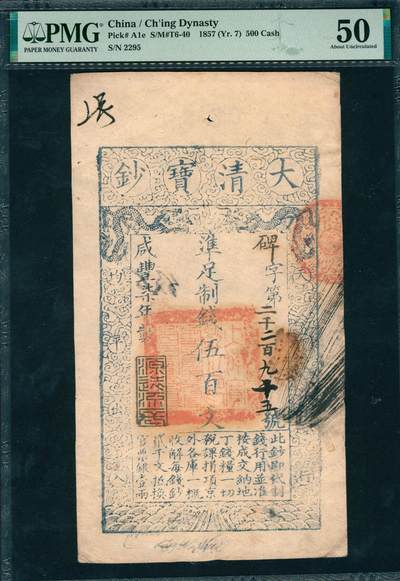 PMG
PAPER MONEY GUARANTY
China / Ch'ing Dynasty
Pick# A1e S/M#T6-40 1857 (Yr. 7) 500 Cash
S/N 2295
50
About Uncirculated
鈔寶清大
碑字第二千二百九十五號
準足制錢伍百文
咸豐柒年製
此鈔即代制
錢行用並准
按成交納地
丁錢糧一切
稅課捐項京
外各庫一概
收解每錢鈔
貳千文抵換
官票銀壹兩